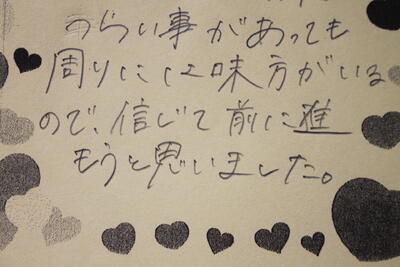 つらい事があっても
周りには味方がいる
ので、信じて前に進
もうと思いました。